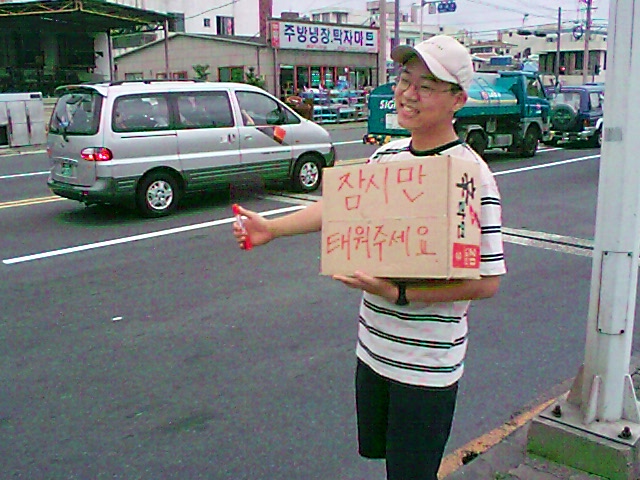 주방냉장.탁자마트
잠시만
태워주세요